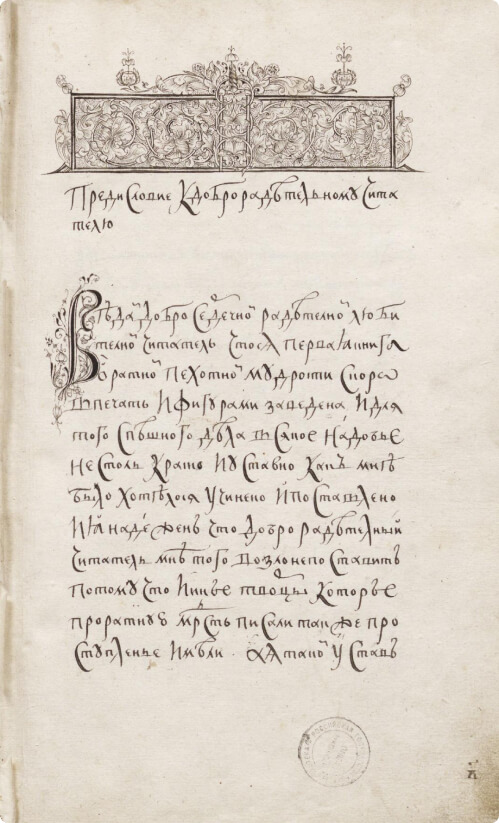 Предисловие К доброрадѣтельному чита
телю
Вѣдаⷨ добро сеⷬ҇дечноⷨ радѣтелноⷨ люби
телноⷨ читатель чтося перваѧ книга
ѡ ратноⷨ пехотноⷨ мудрости скоро
въ печать и фигурами заведена и для
того спѣшного дѣла въ сяпое надобье
не столь кратко и уставно какъ мнѣ
было хотѣлося учинено и поставлено
и ꙗ надеженъ что доброрадѣтелный
читатель мнѣ того во зло непоставитъ
потому что иные творцы которые
про ратную мⷣрость писали такъже про
ступленье имѣли. а я такоⷨ уставъ